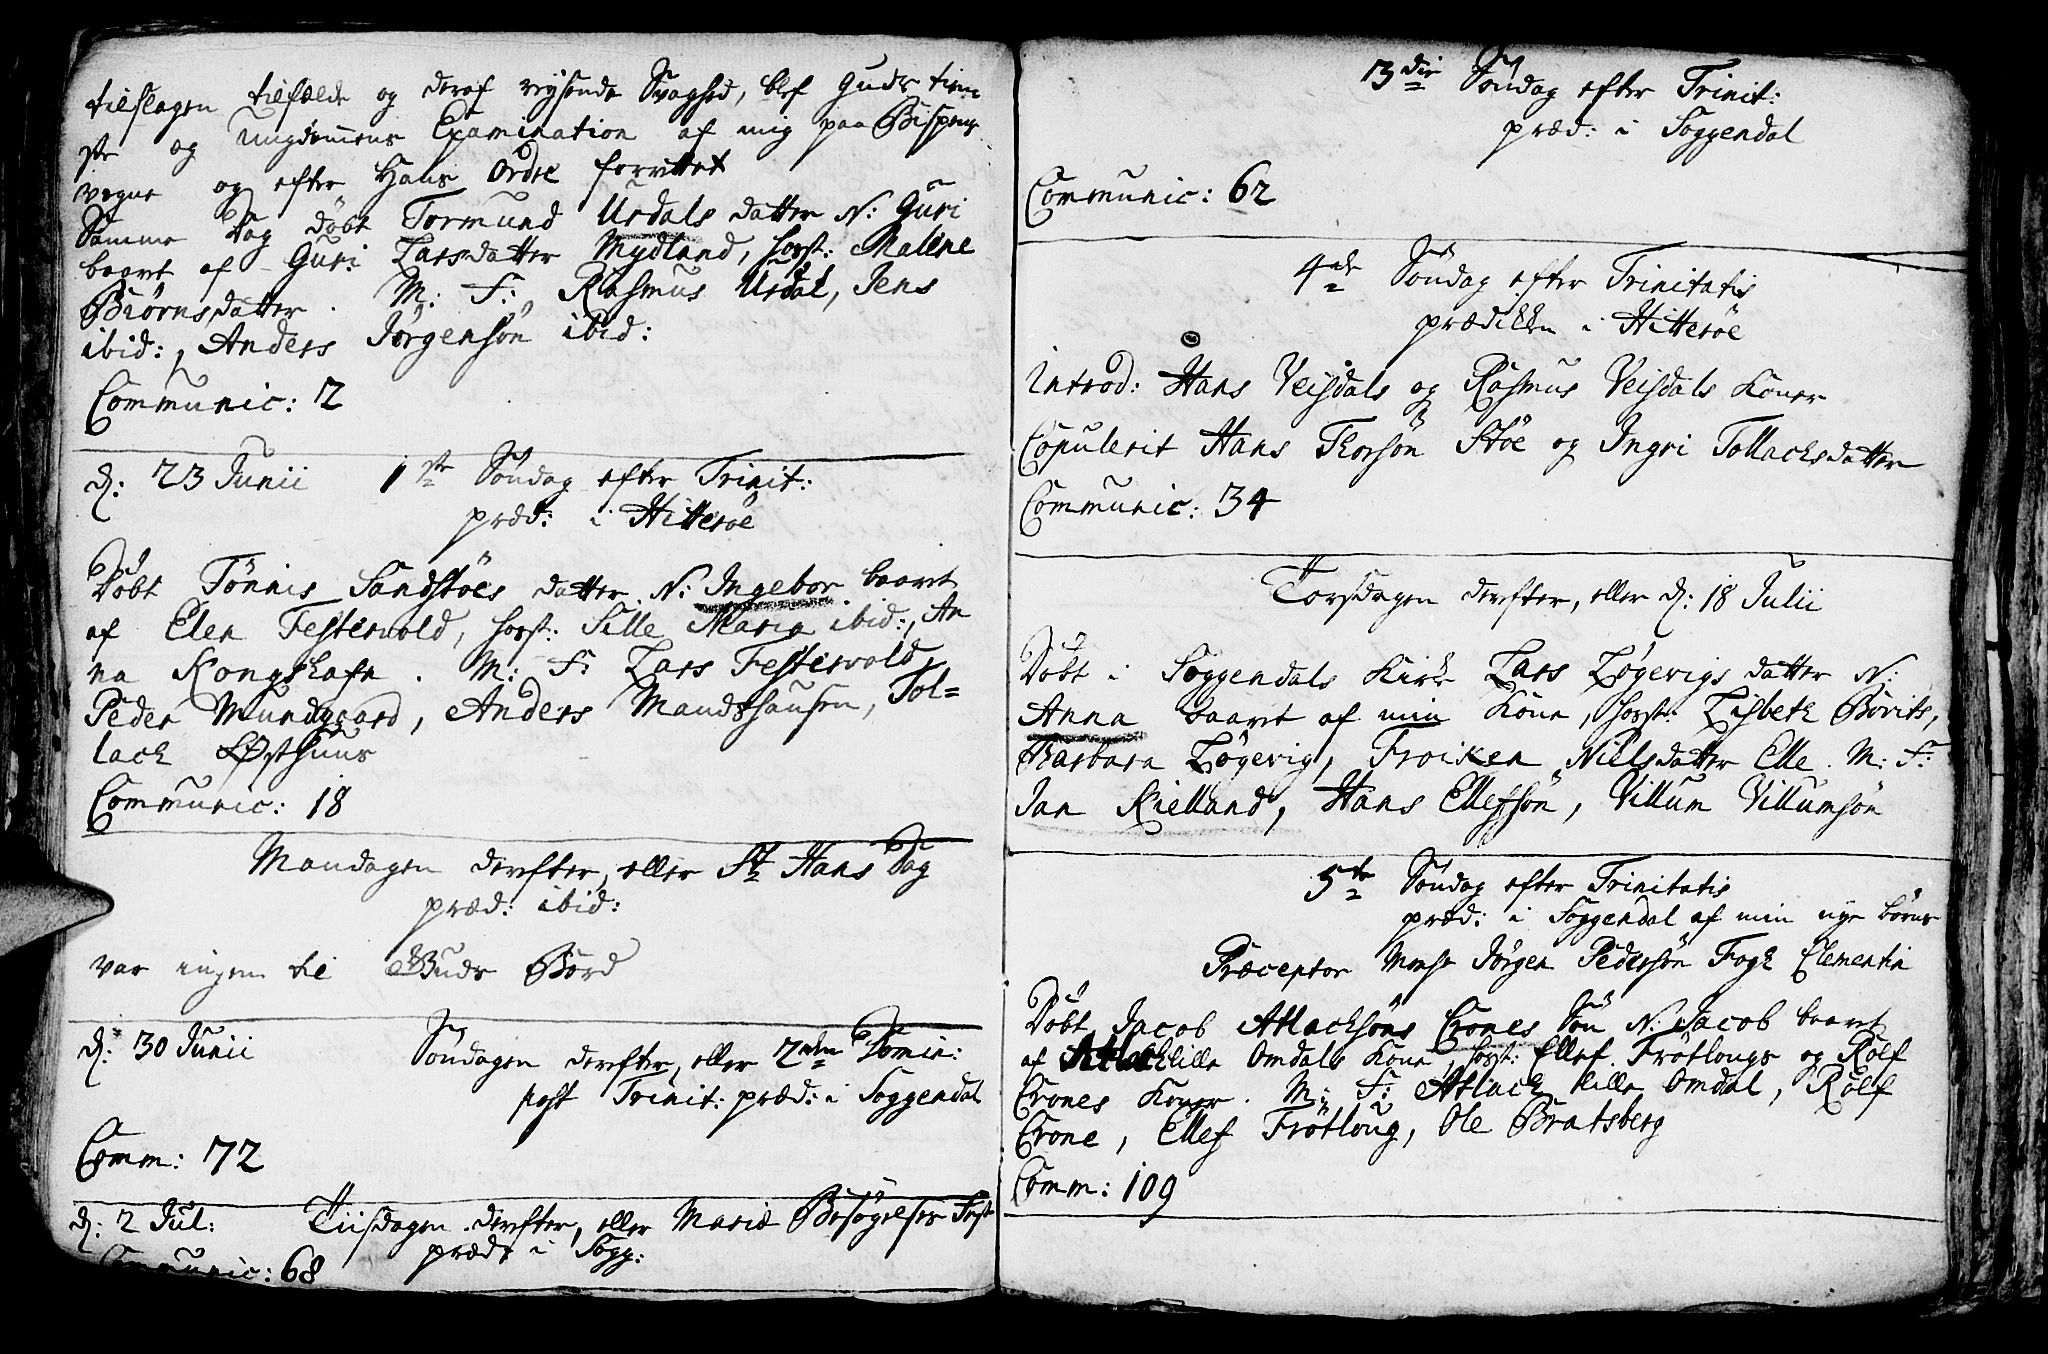 tilslagen tilfælde og deraf reysende Svaghed, blef Guds tiene
ste og ungdommens Examination af mig paa Bispens
vegne og efter Hans Ordre forrettet
Samme Dag døbt Tormund Urdals datter N: Guri
baaret af Guri Larsdatter Mydland, hosst: Malene
Biørnsdatter. M: F: Rasmus Urdal, Jens
ibid:, Anders Jørgensøn ibid:
Communic: 2
d: 23 Junii 1ste Søndag efter Trinit:
præd: i Hitterøe
Døbt Tønnis Sandstøes datter N: Ingebor baaret
af Elen Festervold, hosst: Sille Maria ibid:, An
na Kongshafn. M: F: Lars Festervold,
Peder Mundgaard, Anders Mandshausen, Tol=
lack Østhuus
Communic: 18
Mandagen derefter, eller St Hans Dag
præd: ibid:
var ingen til Guds Bord
d: 30 Junii Søndagen derefter, eller 2den Domin:
post Trinit: præd: i Soggendal
Comm: 72
d: 2 Jul: Tiisdagen derefter, eller Mariæ Besøgelses Fest
præd: i Sogg:
Communic: 68
3die Søndag efter Trinit:
præd: i Soggendal
Communic: 62
4de Søndag efter Trinitatis
prædiken i Hitterøe
Introd: Hans Veisdals og Rasmus Veisdals Koner
Copulerit Hans Thorsøn Støe og Ingri Tollachsdatter
Communic: 34
Torsdagen derefter, eller d: 18 Julii
Døbt i Soggendals Kirke Lars Løgevigs datter N:
Anna baaret af min Kone, hosst: Lisbeth Bovits,
Barbara Løgevig, Froiken Nielsdatter Elle. M: F:
Jan Kielland, Hans Ellefsøn, Villum Villumsøn
5te Søndag efter Trinitatis
præd: i Soggendal af min nye børne
Præceptor Monsr Jørgen Pedersøn Fogh Clementin
Døbt Jacob Atlacksøns Crones Søn N: Jacob baaret
af Atlack lille Omdals Kone hosst: Ellef Frøtlougs og Rolf
Crones Koner. M: F: Atlack lille Omdal, Rolf
Crone, Ellef Frøtloug, Ole Bratsberg
Comm: 109